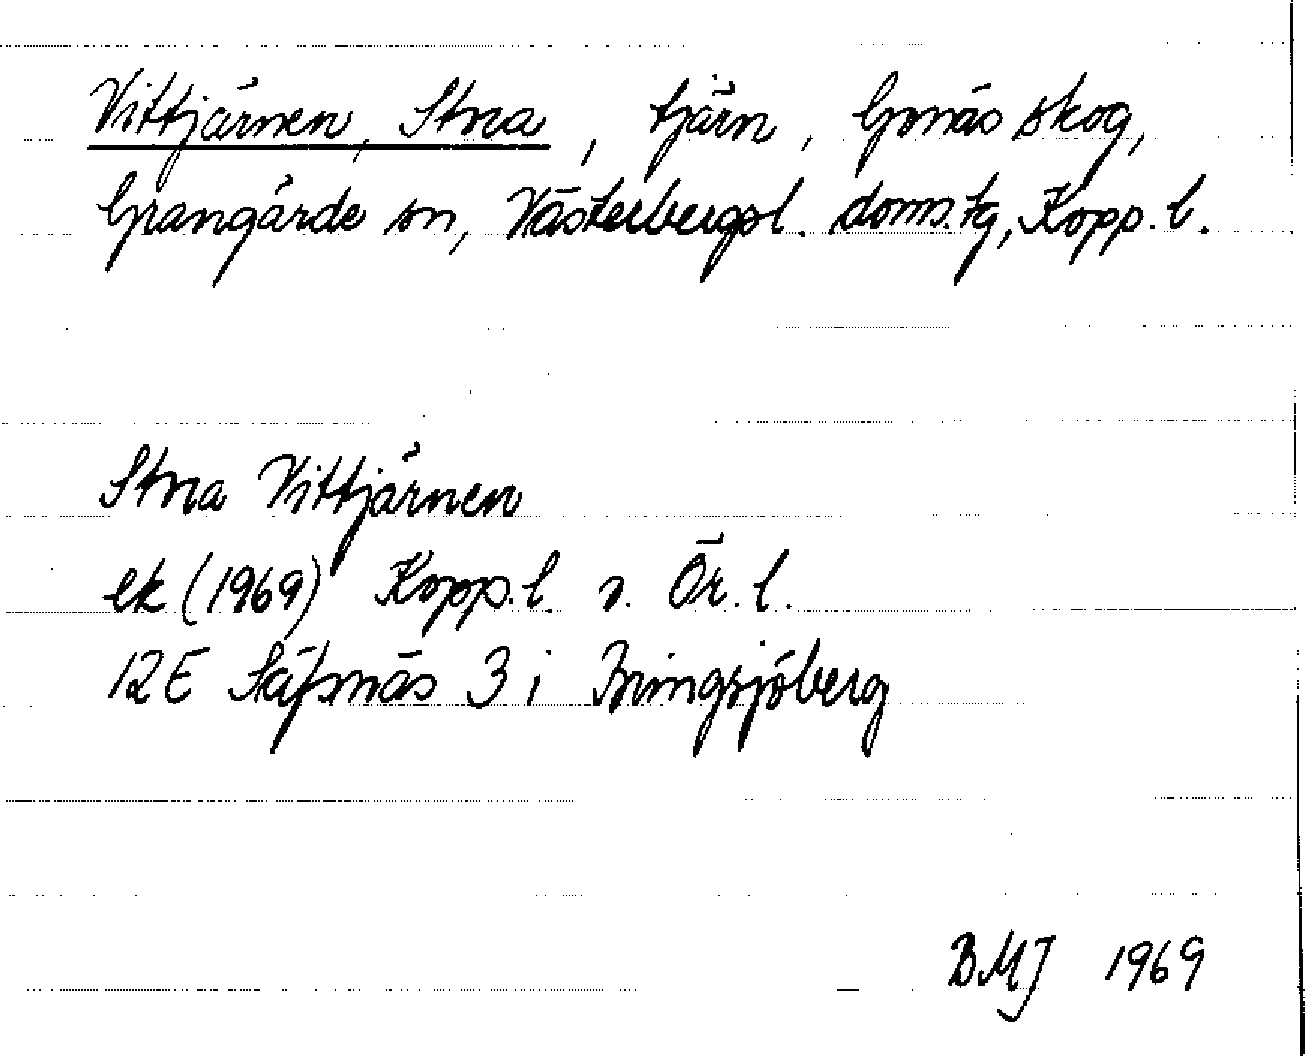 Vittjärnen, Stora, tjärn, Gonäs skog,
Grangärde sn, Västerbergsl. doms.tg, Kopp. l.
Stora Vittjärnen
ek (1969) Kopp. l. o. Ör. l.
12E Säfsnäs 3 i Bringsjöberg
BMJ 1969